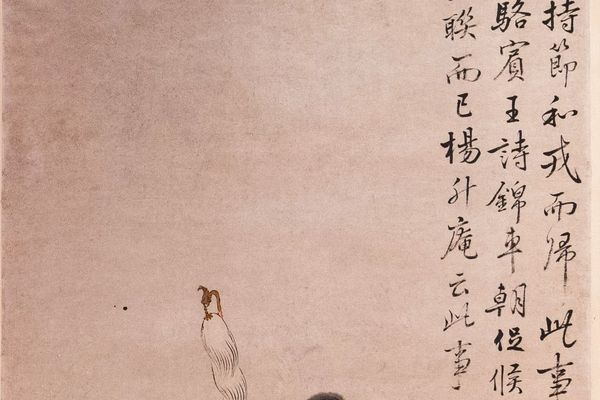 持節和戎而歸此事
駱賓王詩錦車朝促候
聯而已楊升庵云此事